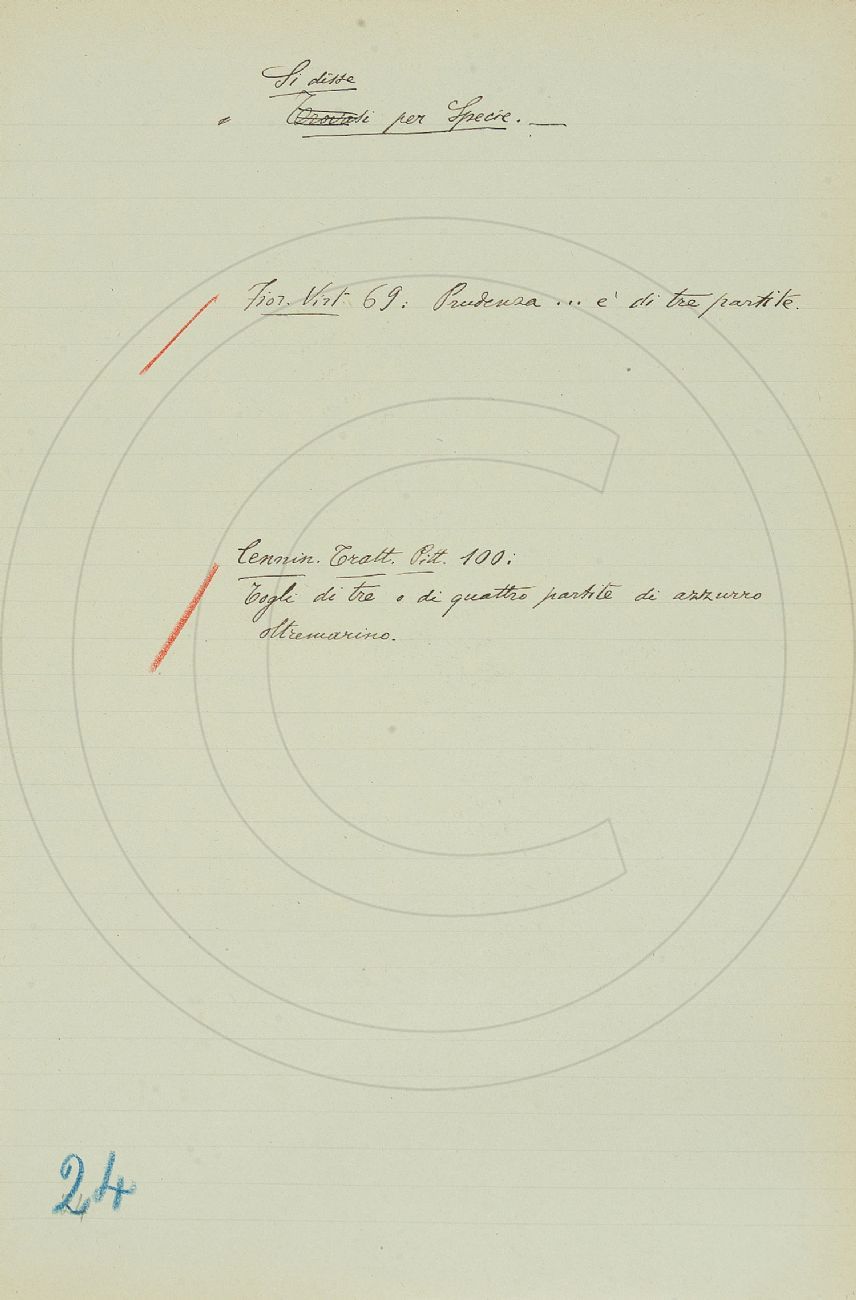 Si disse
" Trovasi per Specie. —
Fior. Virt. 69: Prudenza ... è di tre partite.
Cennin. Tratt. Pitt. 100:
Togli di tre o di quattro partite di azzurro
oltremarino.
24